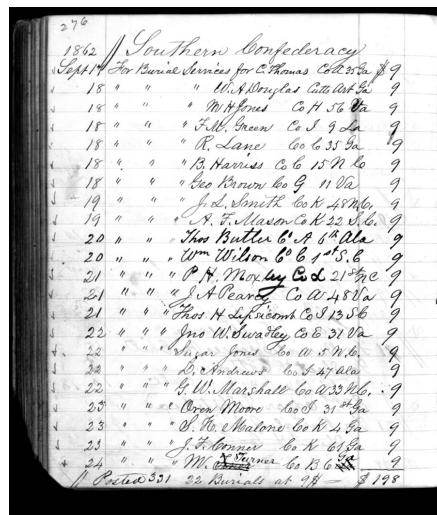 276
1862 // Southern Confederacy
Sept 17 For Burial Services for C. Thomas Co A 35 Ga $ 9
18 " " " W. A Douglas Cutts Art Ga 9
18 " " " M H Jones Co H 56 Va 9
18 " " " F. M. Green Co I 9 La 9
18 " " " R. Lane Co C 35 Ga 9
18 " " " B. Harriss Co C 15 N Co 9
18 " " " Geo Brown Co G 11 Va 9
19 " " " J. L. Smith Co K 48 N.C. 9
19 " " " A. F. Mason Co K 22 S. C. 9
20 " " Thos Butler Co A 6th Ala 9
20 " " Wm Wilson Co C 1st S. C 9
21 " " " P. H. Moxley Co L 21st N C 9
21 " " " J. A Pearcy Co A 48 Va 9
21 " " " Thos H Lipsicomb Co I 13 S C 9
22 " " " Jno W. Swadley Co E 37 Va 9
22 " " " Sugar Jones Co A 5 N. C. 9
22 " " " D. Andrews Co 47 Ala 9
22 " " " G. W. Marshall Co A 33 N C. 9
23 " " " Oron Moore Co I 31st Ga 9
23 " " " S. H. Malone Co K 4 Ga 9
23 " " " J. F. Conner Co K 61 Ga 9
24 " " " M. Turner Co B 6 Ga 9
// Posted 331 22 Burials at 9$ — $ 198